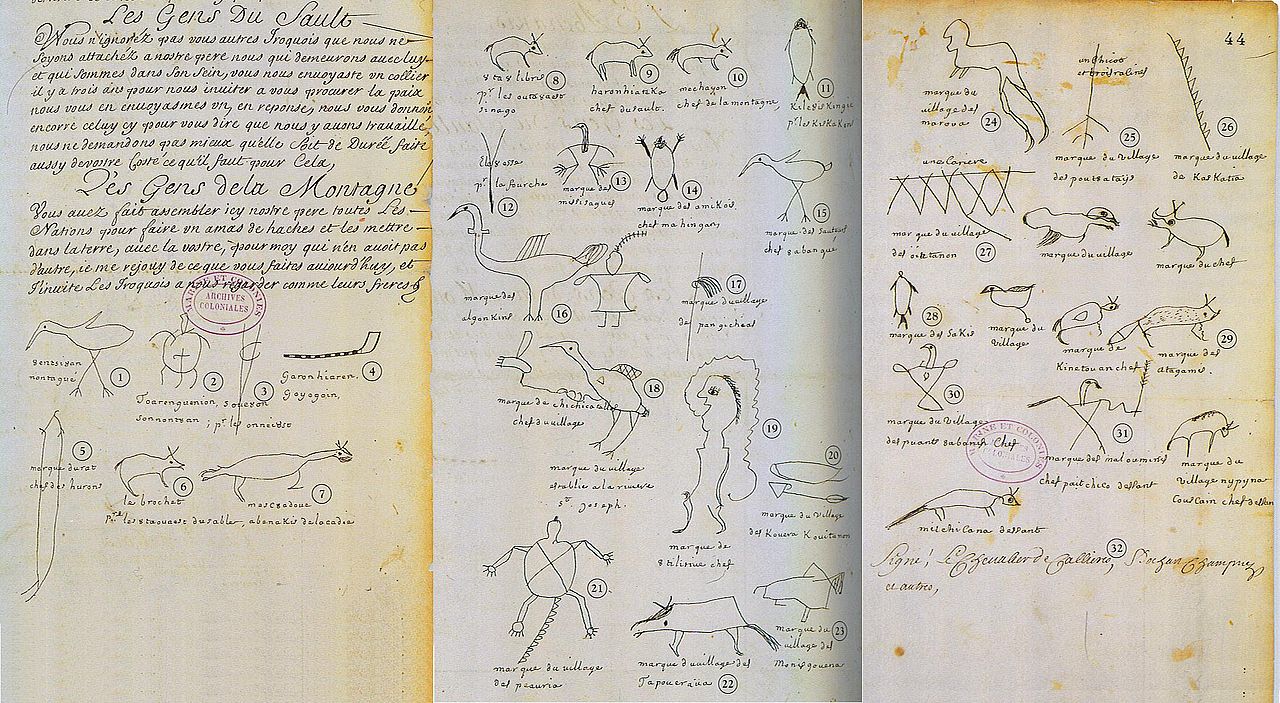 Les Gens Du Sault
Vous n'ignorez pas vous autres Iroquois que nous ne
soyons attachez a nostre pere nous qui demeurons avec luy
et qui sommes dans son sein, vous nous envoyaste vn collier
il y a trois ans pour nous inviter a vous procurer la paix
nous vous en envoyasmes vn, en reponse, nous vous donnons
encorre celuy cy pour vous dire que nous y auons travaillé
nous ne demandons pas mieux qu'elle soit de Durée faite
aussy de vostre Costé ce qu'il faut pour Cela,
Des Gens de la Montagne
Vous auez fait assembler icy nostre pere toutes Les
Nations pour faire vn amas de haches et les mettre
dans la terre, auec la vostre, pour moy qui n'en auoit pas
d'autre, ie me rejouy de ce que vous faites aujourd'huy, et
J'invite Les Iroquois a nous regarder comme leurs freres
ARCHIVES
COLONIALES
1
2
3
4
montague
Toarenguenion,
sonnontuan ; pr les onneiust
Garonhiaren,
Goyogoin,
5
marque du rat
chef des hurons
6
le brochet
7
mescadoue
abenakis de lacadie
8
pr les outaouacs
sinago
9
haronhiateka
chef du sault.
10
mechayon
chef de la montagne
11
Kileouiskingié
pr les Kiskakons
12
pr la fourche
13
marque des
missisagues
14
marque des amikois,
chef mahingan,
15
marque des sauteurs
chef 8abangué
16
marque des
algonkins
17
marque du village
de pangicheas
18
marque de chichicatalo
chef du village
marque du village
establie a la riviere
St. Joseph.
19
marque de
8tilirine chef
20
marque du village
des Kouera Kouitanon
21
marque du village
des peauria
22
marque du village des
Tapoueraüa
23
marque du
village de
Monisgouena
44
24
marque du
village des
maroua
25
un chicot
et trois racines
marque du village
des pouteatamis
26
marque du village
de KasKakia
27
marque du village
des 8iatanon
marque du village
marque du chef
28
marque des Sakis
marque du
village
29
marque de
Kinetouan chef
marque des
atagamis
30
marque du village
des puants 8abanes Chef
31
marque des maloumines
chef paitchico dessant
marque du
village nypyna
Couscain chef dessant
milchilana dessant
32
Signé, Le Chevalier de Callieres, Bochart Champigny
et autres,